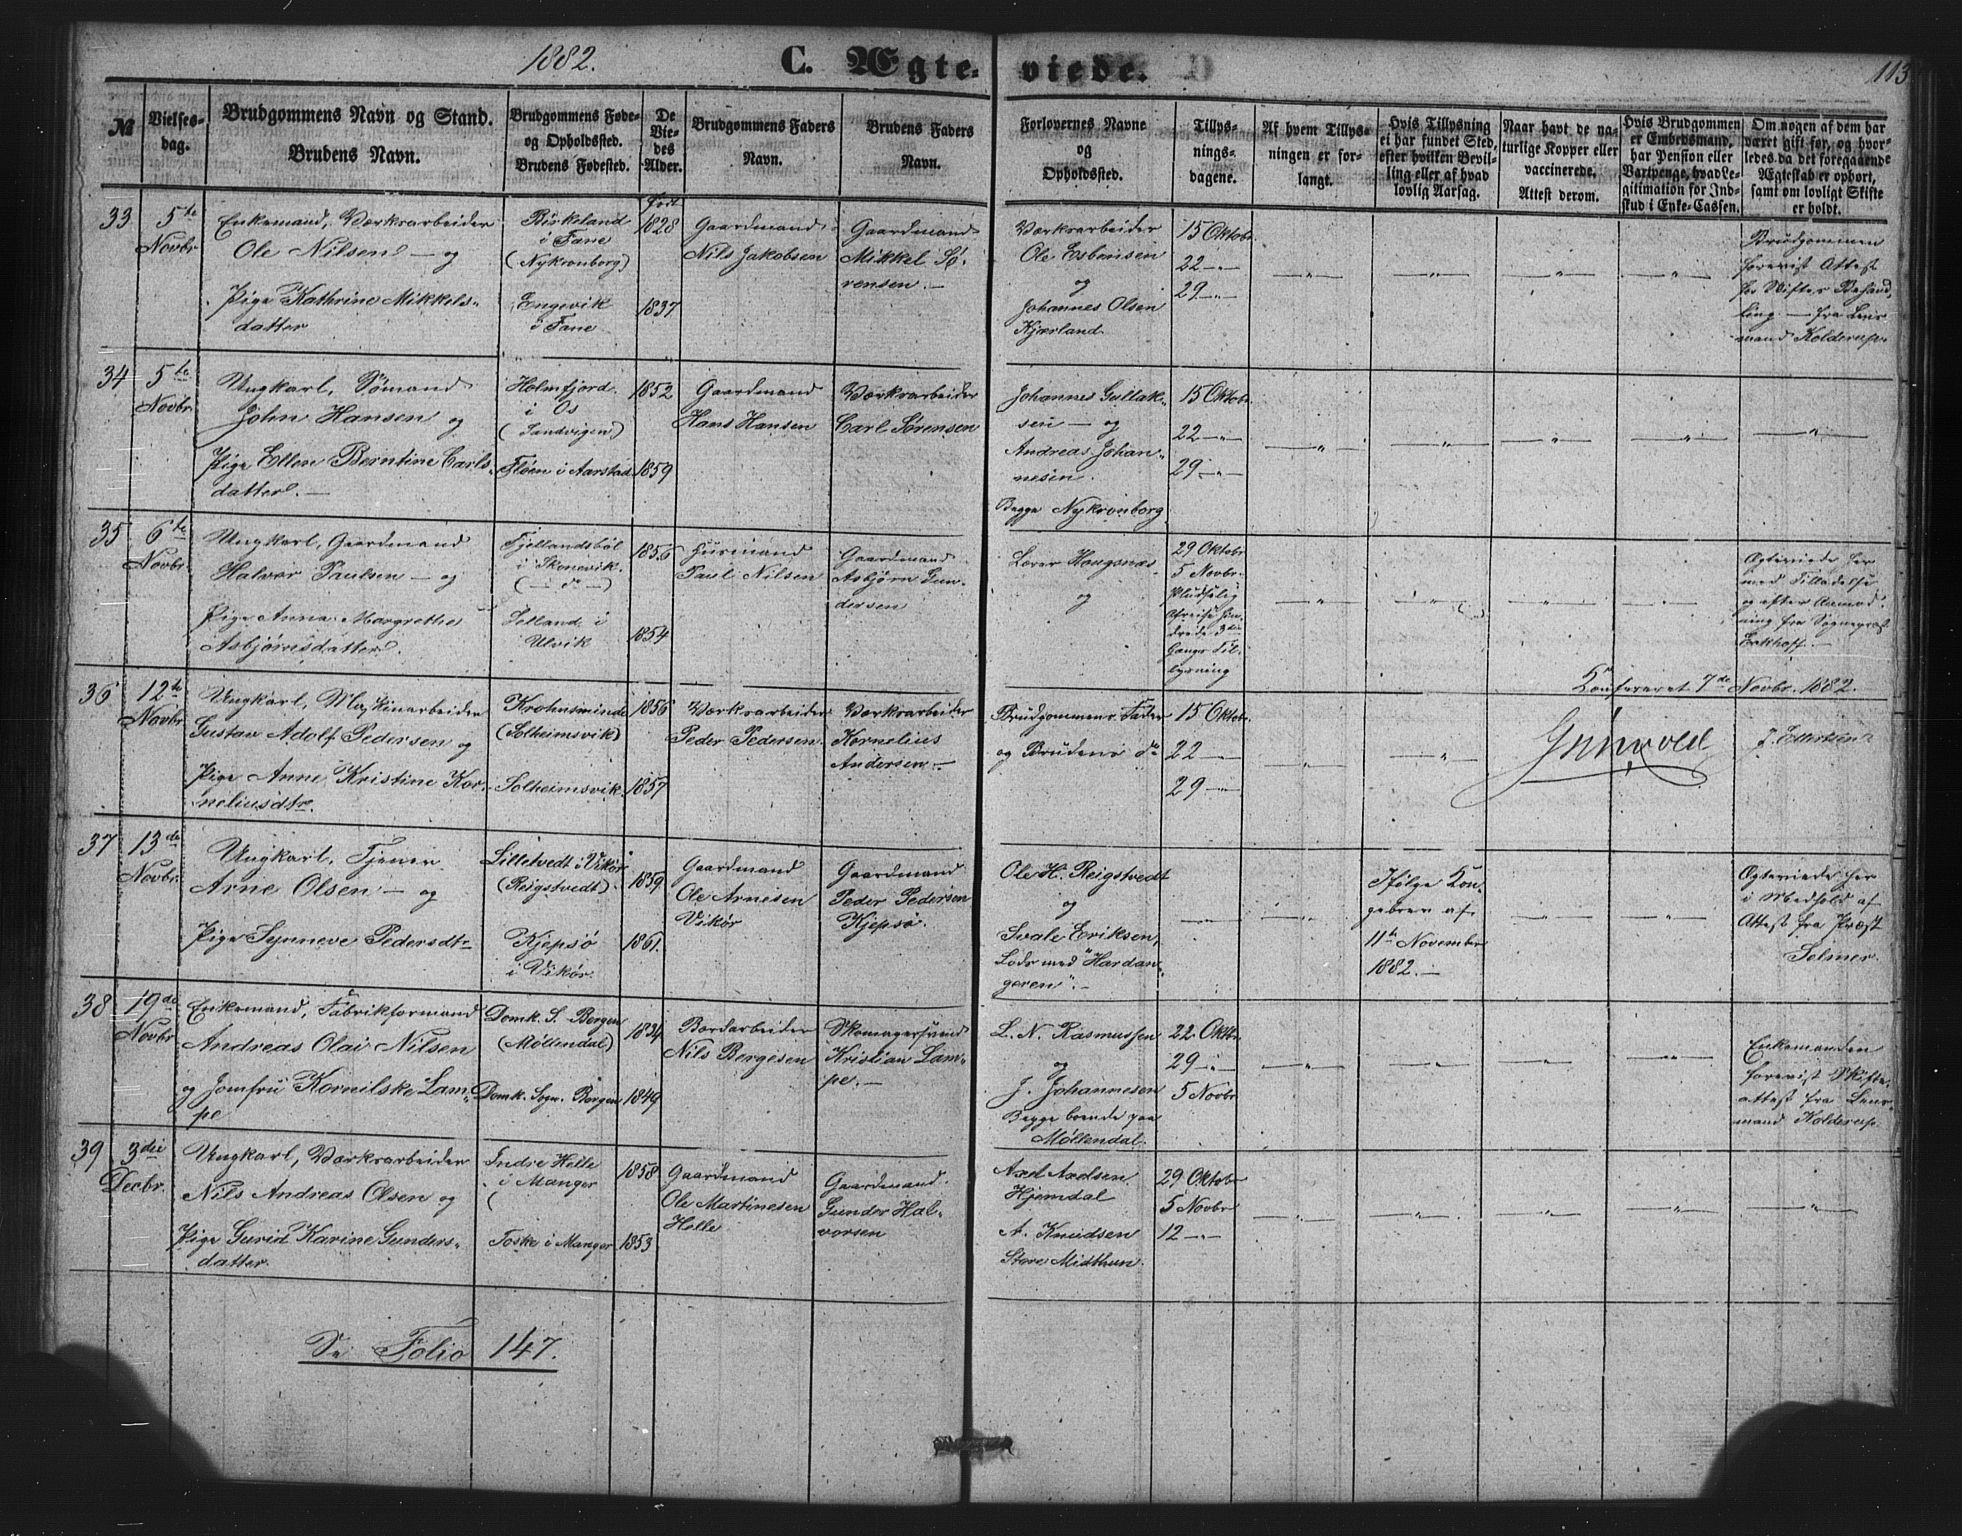 1882.
C. Ægteviede.
113
№
Vielses-
dag.
Brudgommens Navn og Stand.
Brudens Navn.
Brudgommens Føde-
og Opholdssted.
Brudens Fødested.
De
Vie-
des
Alder.
Brudgommens Faders
Navn.
Brudens Faders
Navn.
Forlovernes Navne
og
Opholdssted.
Tillys-
nings-
dagene.
Af hvem Tillys-
ningen er for-
langt.
Hvis Tillysning
ei har fundet Sted,
efter hvilken Bevil-
ling eller af hvad
lovlig Aarsag.
Naar havt de na-
turlige Kopper eller
vaccinerede.
Attest derom.
Hvis Brudgommen
er Embedsmand,
har Pension eller
Vartpenge, hvad Le-
gitimation for Ind-
skud i Enke-Cassen.
Om nogen af dem har
været gift før, og hvor-
ledes da det foregaaende
Ægteskab er ophørt,
samt om lovligt Skifte
er holdt.
33
5te
Novbr
Enkemand, Værksarbeider
Ole Nilsen — og
Pige Kathrine Mikkels-
datter
Birkeland
i Fane
(Nykronborg)
Engevik
i Fane
Født
1828
1837
Gaardmand
Nils Jakobsen
Gaardmand
Mikkel Sø-
rensen. —
Værksarbeider
Ole Esbensen
og
Johannes Olsen
Kjærland.
15 Oktobr.
22 — " —
29 — " —
— " —
— " —
— " —
— " —
Brudgommen
forevist Attest
for Skiftes Behand
ling — fra Lens
mand Kolderup.
34
5te
Novbr.
Ungkarl, Sømand
John Hansen og
Pige Ellen Berntine Carls-
datter. —
Holmfjord
i Os
(Sandvigen)
Fløen i Aarstad
1852
1859
Gaardmand
Hans Hansen
Værksarbeider
Carl Sørensen
Johannes Gullak-
sen — og
Andreas Johan-
nesen.
Begge Nykronborg
15 Oktobr
22 — " —
29 — " —
— " —
— " —
— " —
— " —
— " —
35
6te
Novbr.
Ungkarl, Gaardmand
Halvor Paulsen — og
Pige Anna Margrethe
Asbjørnsdatter.
Fjellandsbøl
i Skonevik.
(— do —)
Selland i
Ulvik
1856
1854
Husmand
Paul Nilsen
Gaardmand
Asbjørn Gun-
dersen
Lærer Haugsnæs
og
29 Oktobr
5 Novbr.
Pludselig
Afreise hin-
drede 3die
Gangs Til-
lysning
— " —
— " —
— " —
— " —
Ægteviede her
med Tilladelse
og efter Anmod-
ning fra Sognepræst
Eckhoff. —
Konfereret 7de Novbr. 1882.
Grinvold
J. Ellertsen
36
12te
Novbr
Ungkarl, Maskinarbeider
Gustav Adolf Pedersen og
Pige Anne Kristine Kor-
neliusdtr.
Krohnsminde
(Solheimsvik)
Solheimsvik.
1856
1857
Værksarbeider
Peder Pedersen.
Værksarbeider
Kornelius
Andersen —
Brudgommens Fader
og Brudens do
15 Oktobr
22 — " —
29 — " —
— " —
— " —
37
13de
Novbr.
Ungkarl, Tjener
Arne Olsen — og
Pige Synneve Pedersdtr
Lilletvedt i Vikør
(Reigstvedt)
Kjepsø
i Vikør
1859
1861.
Gaardmand
Ole Arnesen
Vikør
Gaardmand
Peder Pedersen
Kjepsø.
Ole H. Reigstvedt
og
Svale Eriksen,
Lods med "Hardan-
geren". —
— " —
— " —
Ifølge Kon-
gebrev af
11te November
1882. —
— " —
— " —
Ægteviede her
i Medhold af
Attest fra Præst
Selmer.
38
19de
Novbr
Enkemand, Fabrikformand
Andreas Olai Nilsen
og Jomfru Kornilske Lam-
pe
Domk. S. Bergen
(Møllendal)
Domk. Sogn. Bergen
1834
1849
Bordarbeider
Nils Bergesen
Skomagersvend
Kristian Lam-
pe. —
L. N. Rasmussen
og
J. Johannesen
Begge boende paa
Møllendal.
22 Oktbr.
29 — " —
5 Novbr
— " —
— " —
— " —
— " —
Enkemanden
forevist Skifte-
attest fra Lens-
mand Kolderup.
39
3die
Decbr.
Ungkarl, Værksarbeider
Nils Andreas Olsen og
Pige Gurid Karine Gunders-
datter.
Indre Helle
i Manger
(
Toske i Manger
1858
1853
Gaardmand
Ole Martinesen
Helle
Gaardmand.
Gunder Hal-
vorsen
Axel Axelsen
Hjemdal
A. Knudsen
Store Midthun.
29 Oktobr
5 Novbr
12 — " —
— " —
— " —
— " —
— " —
— " —
Se Folio 147.